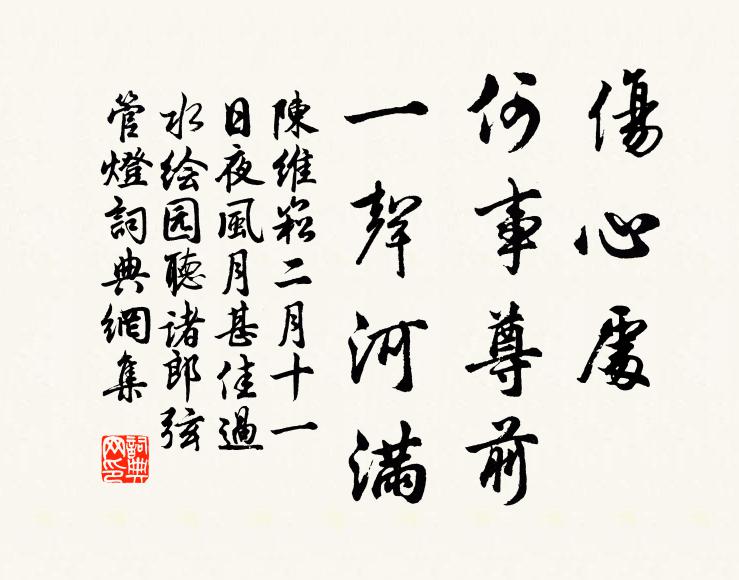 傷心處
何事尊前
一聲河滿
陳維崧二月十一
日夜風月甚佳過
水绘园聽諸郎弦
管燈詞典網集
詞典
网印